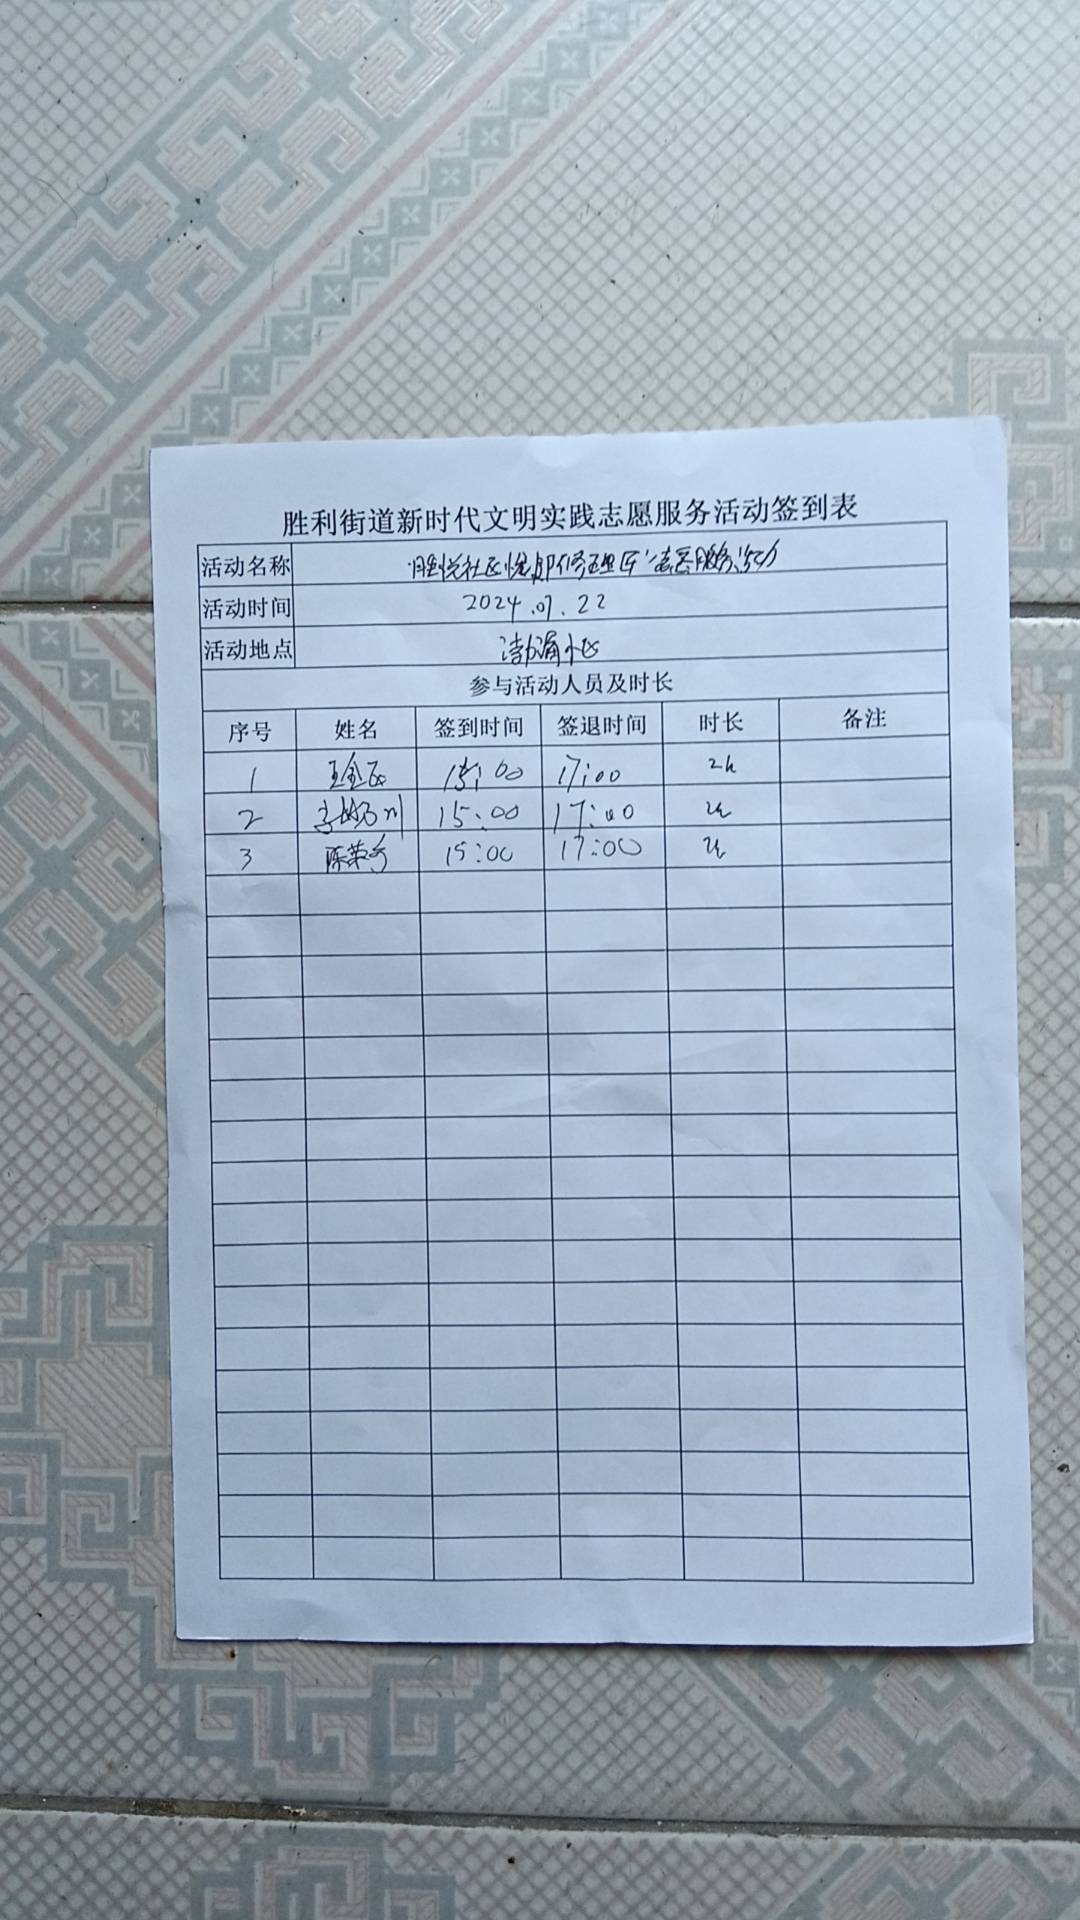 胜利街道新时代文明实践志愿服务活动签到表
活动名称 胜悦社区悦邻修理匠"志愿服务活动
活动时间 2024.07.22
活动地点 渤海小区
参与活动人员及时长
序号 姓名 签到时间 签退时间 时长 备注
1 15:00 17:00 2h
2 15:00 17:00 2h
3 陈荣乡 15:00 17:00 2h